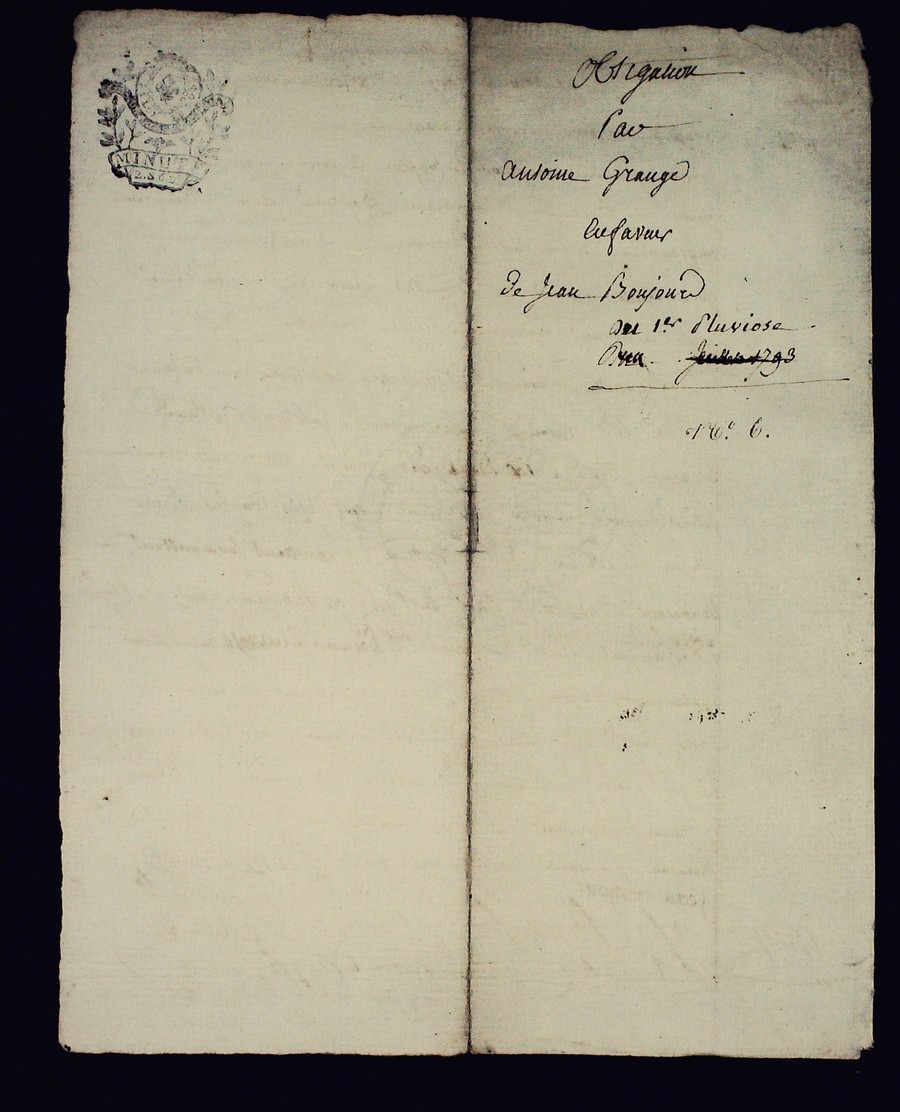 MINUTE
2. S 6 D
Obligation
Par
Antoine Grange
En faveur
de Jean Bonjour
du 1er Pluviose
1793
N.° 6.